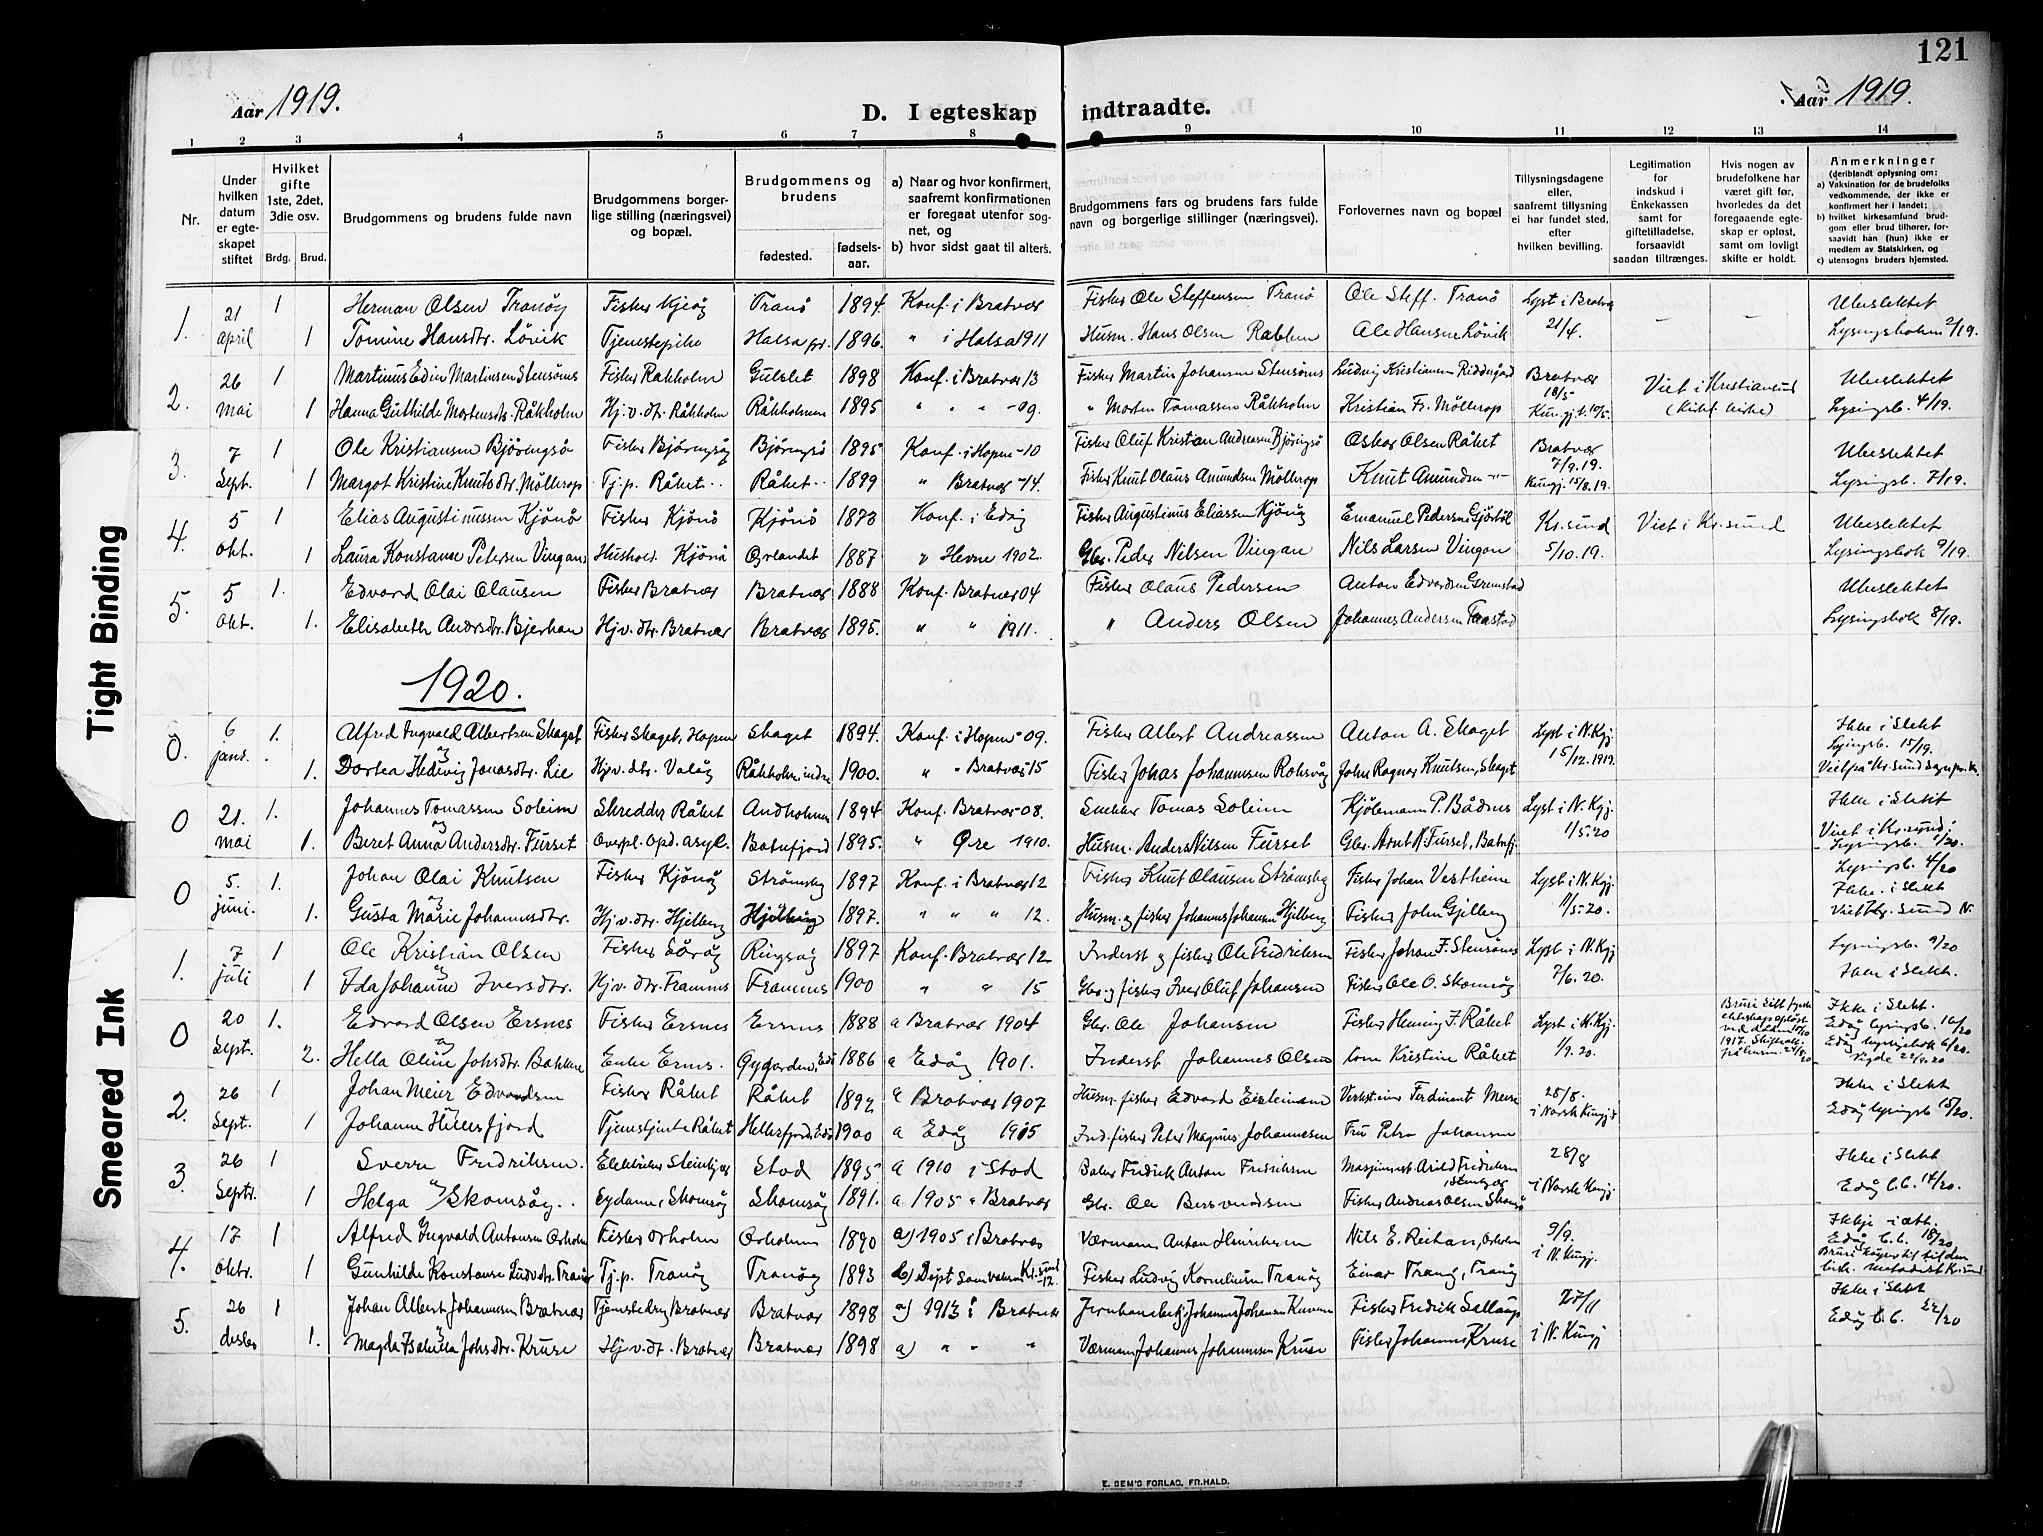 121
Aar 1919.
D. I egteskap indtraadte.
Aar 1919.
1 2 3 4 5 6 7 8 9 10 11 12 13 14
Nr.
Under hvilken datum er egteskapet stiftet
Hvilket gifte 1ste, 2det, 3die osv.
Brdg. Brud.
Brudgommens og brudens fulde navn
Brudgommens borgerlige stilling (næringsvei) og bopæl.
Brudgommens og brudens
fødested.
fødselsaar.
a) Naar og hvor konfirmert, saafremt konfirmationen er foregaat utenfor sognet, og
b) hvor sidst gaat til alters.
Brudgommens fars og brudens fars fulde navn og borgerlige stillinger (næringsvei).
Forlovernes navn og bopæl
Tillysningsdagene eller, saafremt tillysning ei har fundet sted, efter hvilken bevilling.
Legitimation for indskud i Enkekassen samt for giftetilladelse, forsaavidt saadan tiltrænges.
Hvis nogen av brudefolkene har været gift før, hvorledes da det foregaaende egteskap er opløst, samt om lovligt skifte er holdt.
Anmerkninger (deriblandt oplysning om:
a) Vaksination for de brudefolks vedkommende, der ikke er konfirmert her i landet;
b) hvilket kirkesamfund brudgom eller brud tilhører, forsaavidt han (hun) ikke er medlem av Statskirken, og
c) utensogns bruders hjemsted.
1. 21 1 Herman Olsen Tranöy Fisker Kjeöy Tranö 1894. Konf. i Bratvær Fisker Ole Steffensen Tranö Ole Steff. Tranö Lyst i Bratvær Ubeslektet
april 1 Tomine Hansdtr. Lövik Tjenestepike Halsa pr. 1896. " i Halsa 1911 Husm. Hans Olsen Rabben Ole Hansen Lövik 21/4. — — Lysingsboken 2/19.
2. 26 1 Martinus Edin Martinsen Stensönes Fisker Rakholm Gulslet 1898 Konf. i Bratvær 13 Fisker Martin Johansen Stensönes Ludvig Kristiansen Bratvær 18/5 Viet i Kristiansund Ubeslektet
mai 1 Hanna Guthilde Mortensdtr. Råkholm Hj.v.dt. Råkholm Råkholmen 1895 " " " -09. " Morten Tomassen Råkholm Kristian Fr. Möllerop Lysingsb. 4/19.
3. 7 1 Ole Kristiansen Björingsö Fisker Björingsöy Björingsö 1895 Konf. i Hopen -10 Fisker Oluf Kristian Andreasen Björingsö Oskar Olsen Råket Bratvær 7/9.19. Ubeslektet
Sept. 1 Margot Kristine Knutsdtr. Möllerop Tj.p. Råket Råket 1899 " Bratvær -14. Fisker Knut Olaus Amundsen Möllerop Knut Amundsen -"- Kungj. 15/8.19. Lysingsb. 7/19.
4. 5 1 Elias Augustinussen Kjönö Fisker Kjönö Kjönö 1873 Konf. i Edöy Fisker Augustinus Eliassen Kjönöy Emanuel Pedersen Kr.sund Viet i Kr.sund Ubeslektet
Okt. 1 Laura Konstanse Petersen Vingan Hushold. Kjönö Ørlandet 1887 " Hevne 1902. Gbr. Peder Nilsen Vingan Nils Larsen Vingan 5/10.19. Lysingsbok 9/19.
5. 5 1. Edvard Olai Olausen Fisker Bratvær Bratvær 1888 Konf. Bratvær 04 Fisker Olaus Pedersen Anton Edvardsen Grimstad Ubeslektet
Okt. 1. Elisabeth Andrsdtr. Bjerkan Hj.v.dtr. Bratvær Bratvær 1895. " " 1911. " Anders Olsen Johannes Andersen Lysingsbok 8/19.
1920.
0. 6 1. Alfred Ingvald Albertsen Skaget Fisker Skaget, Hopen Skaget 1894. Konf. i Hopen -09. Fisker Albert Andreassen Anton A. Skaget Lyst i N.Kgj. Ikke i Slekt
jans. 1. og Dortea Hedevig Jonasdtr. Lie Hj.v.dtr. Valöy Råkholm indre 1900. " " Bratvær 15 Fisker Johas Johannesen Rohsvåg John Ragnar Knutsen, Skaget 15/12.1919. Lysingsb. 15/19.
0 21. 1. Johannes Tomassen Soleim Skredder Råket Andholmen 1894 Konf. Bratvær -08. Snekker Tomas Soleim Kjöbmann P. Bådnes Lyst i N.Kgj. Ikke i Slekt
mai 1. og Beret Anna Andersdtr. Furset Overpl. Opd. asyl. Batnfjord 1895. " Øre 1910. Husm. Anders Nilsen Furset Gbr. Arnt N. Furset, Batnfj. 1/5.20 Viet i Kr.sund; Lysingsb. 1/20.
0 5. 1. Johan Olai Knutsen Fisker Kjönöy Strömsby 1897 Konf. i Bratvær 12 Fisker Knut Olausen Strömsby Fisker Johan Vestheim Lyst i N.Kgj. Lysingsb. 4/20
juni. 1. og Gusta Marie Johannesdtr. Hj.v.dtr. Hjelberg Hjelberg 1897. " " " 12. Husm. og fisker Johannes Johansen Hjelberg Fisker John Gjelberg 11/5-20. Ikke i Slekt Viet Kr.sund N.
1. 7 1 Ole Kristian Olsen Fisker Söröy Ringsöy 1897 Konf. Bratvær 12 Inderst og fisker Ole Fredriksen Fisker Johan F. Stensönes Lyst i N.Kgj. Lysingsb. 9/20
juli 1 og Ida Johanne Iversdtr. Hj.v.dtr. Framnes Framnes 1900 " " 15 Gbr. og fisker Iver Oluf Johansen Fisker Ole O. Skomsöy 7/6.20. Ikke i Slekt.
0 20 1. Edvard Olsen Ersnes Fisker Ersnes Ersnes 1888 a Bratvær 1904 Gbr. Ole Johansen Fisker Heming F. Råket Lyst i N.Kgj. Ikke i Slekt.
Sept. 2. og Hella Oline Johsdtr. Bakken Enke Ersnes. Gygarden, Edö 1886 a Edöy 1901. Inderst Johannes Olsen Kone Kristine Råket 1/9.20. Edöy lysingsb. 16/20
2. 26 1 Johan Meier Edvardsen Fisker Råket Råket 1892 a Bratvær 1907 Husm. fisker Edvard Ferdinant Meier 28/8. Ikke i Slekt
Sept. 1 Johanne Hellesfjord Tjenestjente Råket Hellesfjord, Edö 1900 a Edöy 1915 Ind. fisker Peter Magnus Johannesen Fru Petra Johansen i Norsk Kungj. Edöy lysingsb 15/20.
3. 26 1 Sverre Fredriksen. Elektriker Steinkjær Stod 1895. a 1910 i Stod Baker Fredrik Anton Fredriksen Masjinmest. Arild Fredriksen, Steinkjær 28/8 Ikke i Slekt
Septr. 1 og Helga Skomsöy. Skomsöy Skomsöy 1891. a 1905 " Bratvær Gbr. Ole Bersvendsen Fisker Andreas Olsen Skomsö i Norsk Kungj. Edöy l.b. 14/20.
4. 17 1 Alfred Ingvald Antonsen Orholm Fisker Orholm Orholmen 1890 a) 1905 i Bratvær Værmann Anton Hinriksen Nils E. Reitan, Orholm 9/9. Ikkje i ætt.
Oktr. 1 Gunhilde Konstanse Ludvdtr. Tranöy Tj.p. Tranöy Tranöy 1893 b) Döpt som voksen Kr.sund -12. Fisker Ludvig Kornelius Tranöy Einar Tranöy, Tranöy i N. Kungj. Edöy l.b. 18/20
5. 26 1 Johan Albert Johannesen Bratvær Tjenestedreng Bratvær Bratvær 1898 a) 1913 i Bratvær Johannes Johansen Fisker Fredrik 25/11 Ikke i Slekt
desbr 1. og Magda Isabella Johsdtr. Kruse Hj.v.dt. Bratvær Bratvær 1898 a) " " " Værmann Johannes Johannesen Kruse Fisker Johannes Kruse i N. Kungj Edöy l.b. 22/20
E. SEM'S FORLAG, FR.HALD.
Tight Binding
Smeared Ink